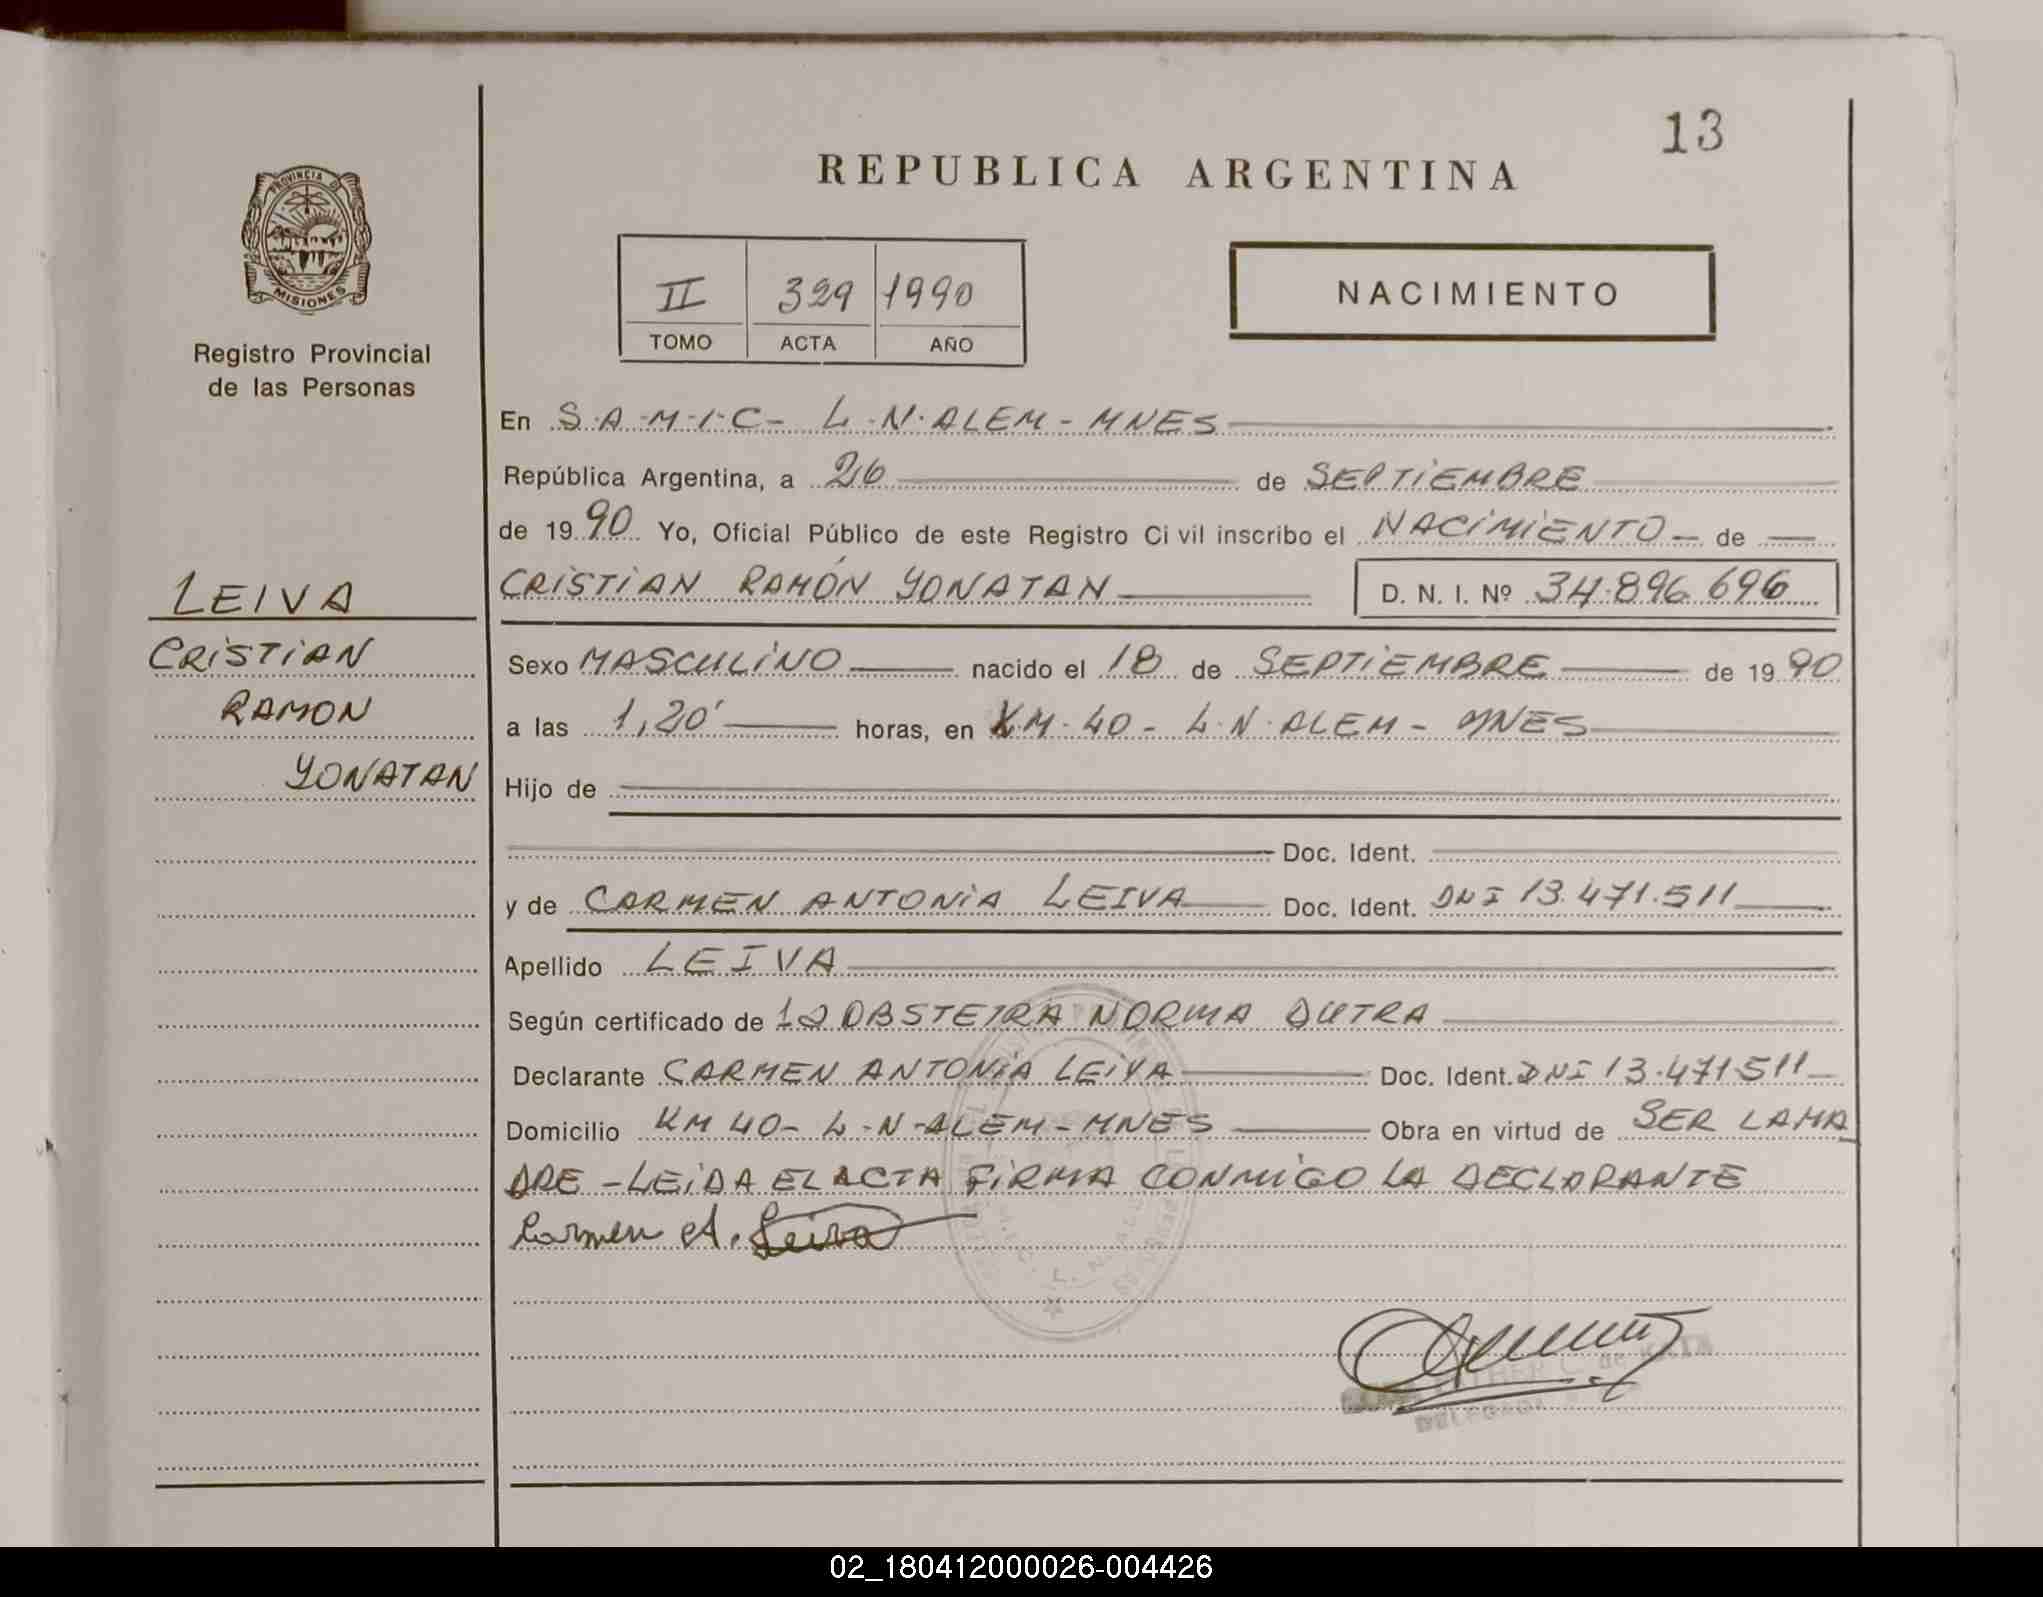 13
REPUBLICA ARGENTINA
PROVINCIA D
MISIONES
Registro Provincial
de las Personas
II 329 1990
TOMO ACTA AÑO
NACIMIENTO
En S.A.M.I.C- L.N.ALEM-MNES
República Argentina, a 26 de SEPTIEMBRE
de 1990 Yo, Oficial Público de este Registro Ci vil inscribo el NACIMIENTO de
CRISTIAN RAMÓN YONATAN D. N. I. Nº 34.896.696
LEIVA
CRISTIAN
RAMON
YONATAN
Sexo MASCULINO nacido el 18 de SEPTIEMBRE de 1990
a las 1,20' horas, en KM.40- L.N.ALEM- MNES
Hijo de
Doc. Ident.
y de CARMEN ANTONIA LEIVA Doc. Ident. DNI 13.471.511
Apellido LEIVA
Según certificado de la OBSTETRA NORMA DUTRA
Declarante CARMEN ANTONIA LEIVA Doc. Ident. DNI 13.471511
Domicilio KM 40- L-N-ALEM-MNES Obra en virtud de SER LA MA
DRE -LEIDA EL ACTA FIRMA CONMIGO LA DECLARANTE
Carmen A. Leiva
02_180412000026-004426